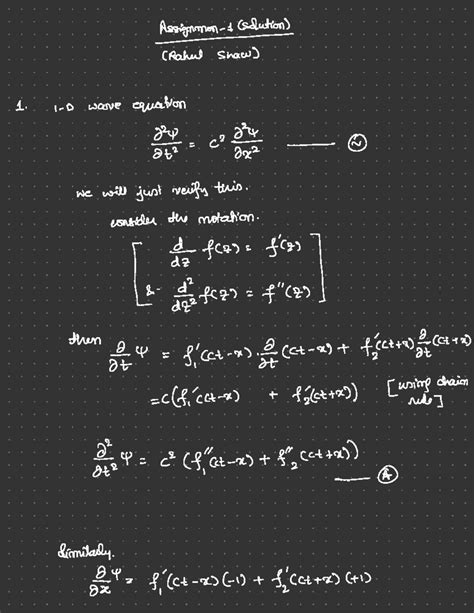 Assignmen-1 (solution)
(Rahul Shaw)
1. 1-D wave equation
∂²ψ/∂t² = c² ∂²ψ/∂x² —— (~)
we will just verify this.
consider the notation.
[ d/dz f(z) = f'(z)
& d²/dz² f(z) = f''(z) ]
then ∂/∂t ψ = f₁'(ct-x).∂/∂t (ct-x) + f₂'(ct+x) ∂/∂t (ct+x)
= c(f₁'(ct-x) + f₂'(ct+x)) [using chain rule]
∂²/∂t² ψ = c² (f₁''(ct-x) + f₂''(ct+x)) —— (A)
Similarly.
∂/∂x ψ = f₁'(ct-x)(-1) + f₂'(ct+x)(+1)